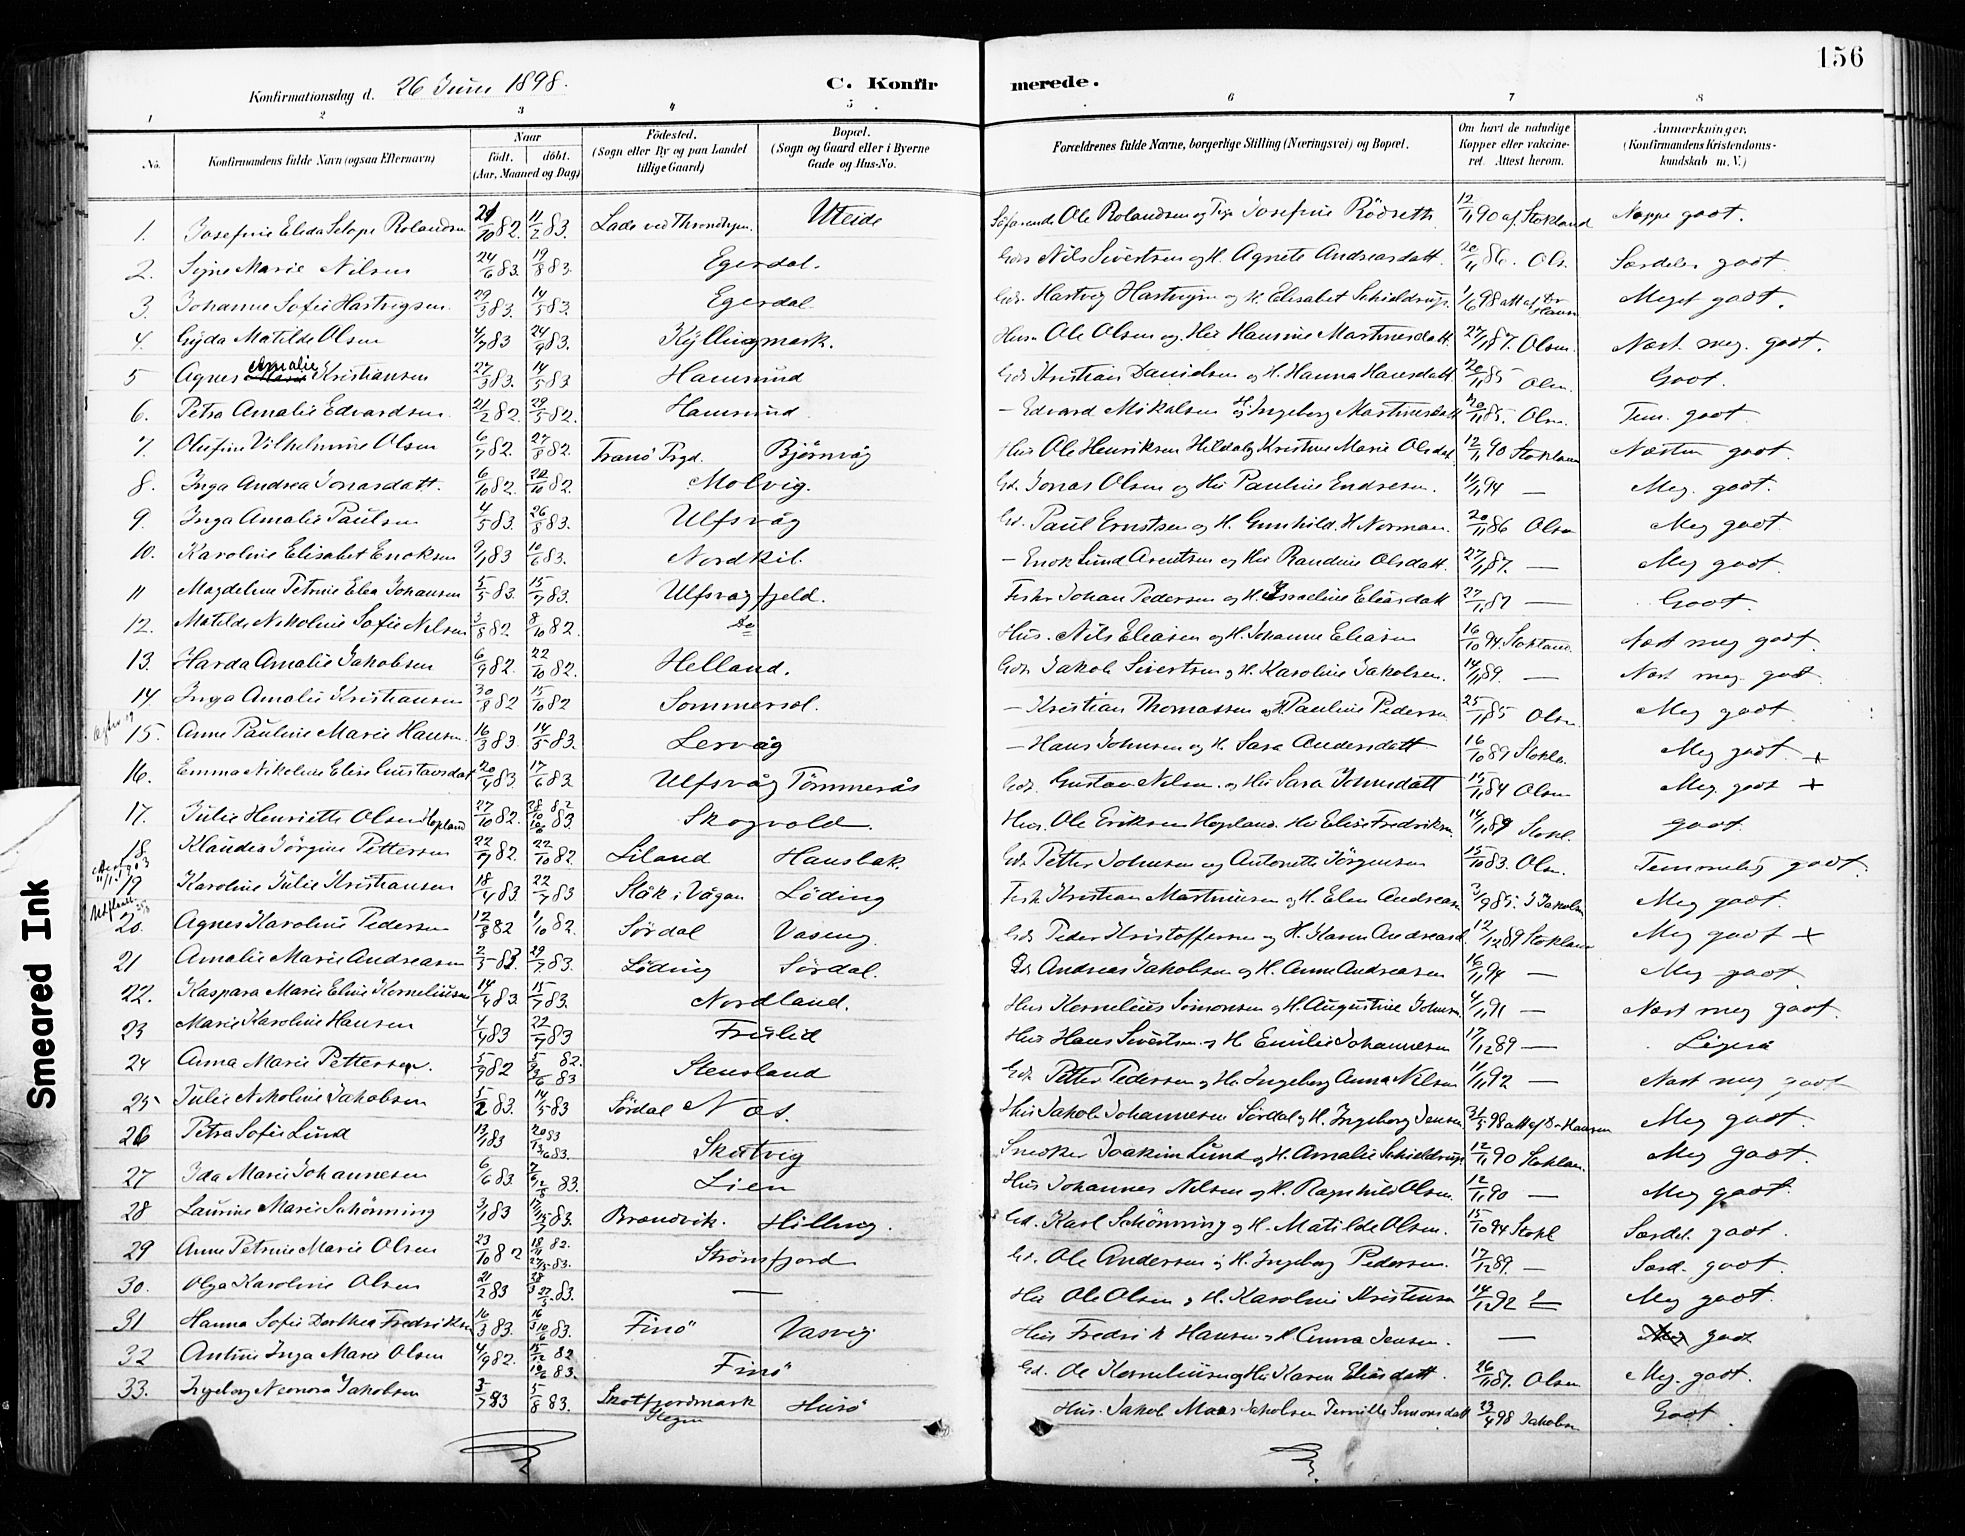 156
Konfirmationsdag d. 26 Juni 1898.
C. Konfirmerede.
1 2 3 4 5 6 7 8
No. Konfirmandens fulde Navn (ogsaa Efternavn) Naar født. døbt. (Aar, Maaned og Dag) Fødested. (Sogn eller By og paa Landet tillige Gaard) Bopæl. (Sogn og Gaard eller i Byerne Gade og Hus-No. Forældrenes fulde Navne, borgerlige Stilling (Næringsvei) og Bopæl. Om havt de naturlige Kopper eller vakcineret. Attest herom. Anmærkninger. (Konfirmandens Kristendomskundskab m. V.)
1. Josefine Elida Rolandsen 82. 11/2 83. Lade ved Uteide Ole Rolandsen og Josefine Rödseth 12/11 90 af Stokland Neppe godt.
2. Signe Marie Nilsen 24/6 83. 19/8 83. Egerdal. Nils Sivertsen og H. Agnete Andreasdatt. 20/11 86. Ols. Særdeles godt.
3. Johanne Sofie Hartvigsen 29/3 83. 14/5 83. Egerdal Hartvig Hartvigsen og H. Elisabet Schieldrup. 1/6 98 att af Dr Hansen Meget godt.
4. Gyda Matilde Olsen 4/7 83 24/9 83. Kyllingmark. Ole Olsen og Hu Hansine Martinesdatt. 27/11 87. Olsen. Næst meg. godt.
5 Agnes Amalie Kristiansen 27/3 83. 14/5 83 Hamsund Kristian Danielsen og H. Hanna Hansdatt 20/11 85 Olsn. Godt.
6. Petra Amalie Edvardsen 21/2 82. 29/5 82. Hamsund. – Edvard Mikalsen H. og Ingeborg Martinesdatt 20/11 85. Olsn. Tem. godt.
7. Olufine Vilhelmine Olsen 6/7 82. 27/8 82. Tranö Prgd. Bjørnvåg Hus Ole Henriksen Hildal og Kristine Marie Olsdat. 12/11 90 Stoklan Næsten godt.
8. Inga Andrea Jonasdatt. 6/10 82. 22/10 82. Molvig. Gd. Jonas Olsen og Hu Pauline Endresen. 11/11 94 — Meg. godt.
9. Inga Amalie Paulsen 4/5 83. 26/8 83. Ulfsvåg Gd. Paul Ernstsen og H. Gunhild. H. Norman. 20/11 86 Olsn Meg godt
10. Karoline Elisabet Enoksen 9/1 83 10/6 83. Nordkil. – Enok Lund Arentsen og Hu Randine Olsdatt. 27/11 87. — Meg godt.
11 Magdeline Petrine Elea Johansen 5/5 83. 15/7 83. Ulfsvagfjeld. Fisker Johan Pedersen og H. Israeline Eliasdatt 27/11 87 — Godt.
12. Matilde Nikoline Sofie Nilsen 3/8 82 8/10 82. Do Hus. Nils Eliasen og H. Johanne Eliasen 16/10 94. Stokland. Næst meg godt.
13. Harda Amalie Jakobsen 6/9 82. 22/10 82. Helland. Gdr. Jakob Sivertsen og H. Karoline Jakobsen. 14/11 89. — Næst meg godt
14. Inga Amalie Kristiansen 30/8 82 15/10 82 Sommersel. – Kristian Thomassen og H Pauline Pedersn 25/11 85 Olsn Meg godt
15. Anne Pauline Marie Hansn. 16/3 83. 14/5 83. Lervåg – Hans Johnsen og H. Sara Andersdatt 16/10 89 Stokl. Meg godt +
16. Emma Nikoline Elise Gustavsdat 20/4 83 17/6 83 Ulfsvåg Tømmerås Gdr. Gustav Nilsen. og Hu Sara Johnsdatt 84 Olsn Meg godt +
17. Julie Henriette Olsen Hopland 27/10 82. 28/10 82 83. Skogvold. Hus. Ole Eriksen Hopland. Hu Elise Fredriksn. 14/11 89 Stokl. godt.
18. Klaudia Jörgine Pettersen 22/7 82. 22/10 82. Liland Hansbak. Gdr. Petter Johnsen og Antonette Jörgensen 15/10 83. Olsn. Temmelig godt.
19 Karoline Julie Kristiansen 18/4 83. 22/7 83 Slåk i Vågan Löding Fisk. Kristian Martinusen og H. Elen Andreasn 3/9 85. J Jakobsn Meg godt.
20. Agnes Karoline Pedersen 12/8 82 1/10 82. Sørdal Vaseng. Gdr Peder Kristoffersen og H. Karen Andreasd. 12/12 89 Stoklan Meg godt +
21 Amalie Marie Andreasen 2/5 83. 29/7 83. Löding Sørdal. Gdr Andreas Jakobsen og H. Anne Andreasen 16/11 94 — Meg godt.
22. Kaspara Marie Eline Korneliusen 14/4 83. 15/7 83. Nordland. Hus Kornelius Simonsen og H. Augustine Johnsn. 4/11 91 — Næst meg godt.
23 Marie Karoline Hansen 4/4 83 22/7 83 Fruslid Hus Hans Sivertsen og H Emilie Johannesen 17/12 89 — Ligeså
24 Anna Marie Pettersen. 5/9 82 82. 83 Stensland Gdr. Petter Pedersen og H. Ingeborg Anna Nilsen 11/11 92 — Næst meg godt
25 Julie Nikoline Jakobsen 5/2 83. 14/5 83 Sørdal Næs. Hus Jakob Johannesen Sørdal og H. Ingeborg Jensen 31/5 98 att af Dr Hansen Meg godt.
26 Petra Sofie Lund 13/1 83 83 83. Skutvig Snedker Joakim Lund og H. Amalie Schieldrup 12/11 90 Stoklan. Meg godt.
27 Ida Marie Johannesen 6/6 83. 83. Lien Hus Johannes Nilsen og H. Ragnhild Olsen. 12/11 90 — Meg godt.
28 Laurine Marie Schönning 3/1 83 83. Brandvik. Hilling. Gd. Karl Schönning og H. Matilde Olsen. 15/10 94 Stokl Særdel. godt.
29 Anne Petrine Marie Olsen 23/10 82 82. 83. Strömsfjord Gd. Ole Andersen og H. Ingeborg Pedersen. 17/12 89. — Særd. godt.
30. Olga Karoline Olsen 21/2 83 83. — Hus Ole Olsen og H. Karoline Kristensn 92 — Meg godt.
31 Hanna Sofie Dorthea Fredriksn 16/3 83. 83. Finö Vasvig Hus Fredrik Hansen og H. Anna Jensen. — godt
32 Antine Inga Marie Olsen 4/9 82. 82 83. Finö Gd. Ole Korneliusen og Hu Karen Eliasdatt. 26/11 87. Olsen Meg. godt.
33. Ingeborg Neonora Jakobsen 83 5/8 83. Skotfjordmark Husö Hus. Jakob Maas Jakobsen Simonsdatt 23/4 98 Jakobsn Godt
Smeared Ink